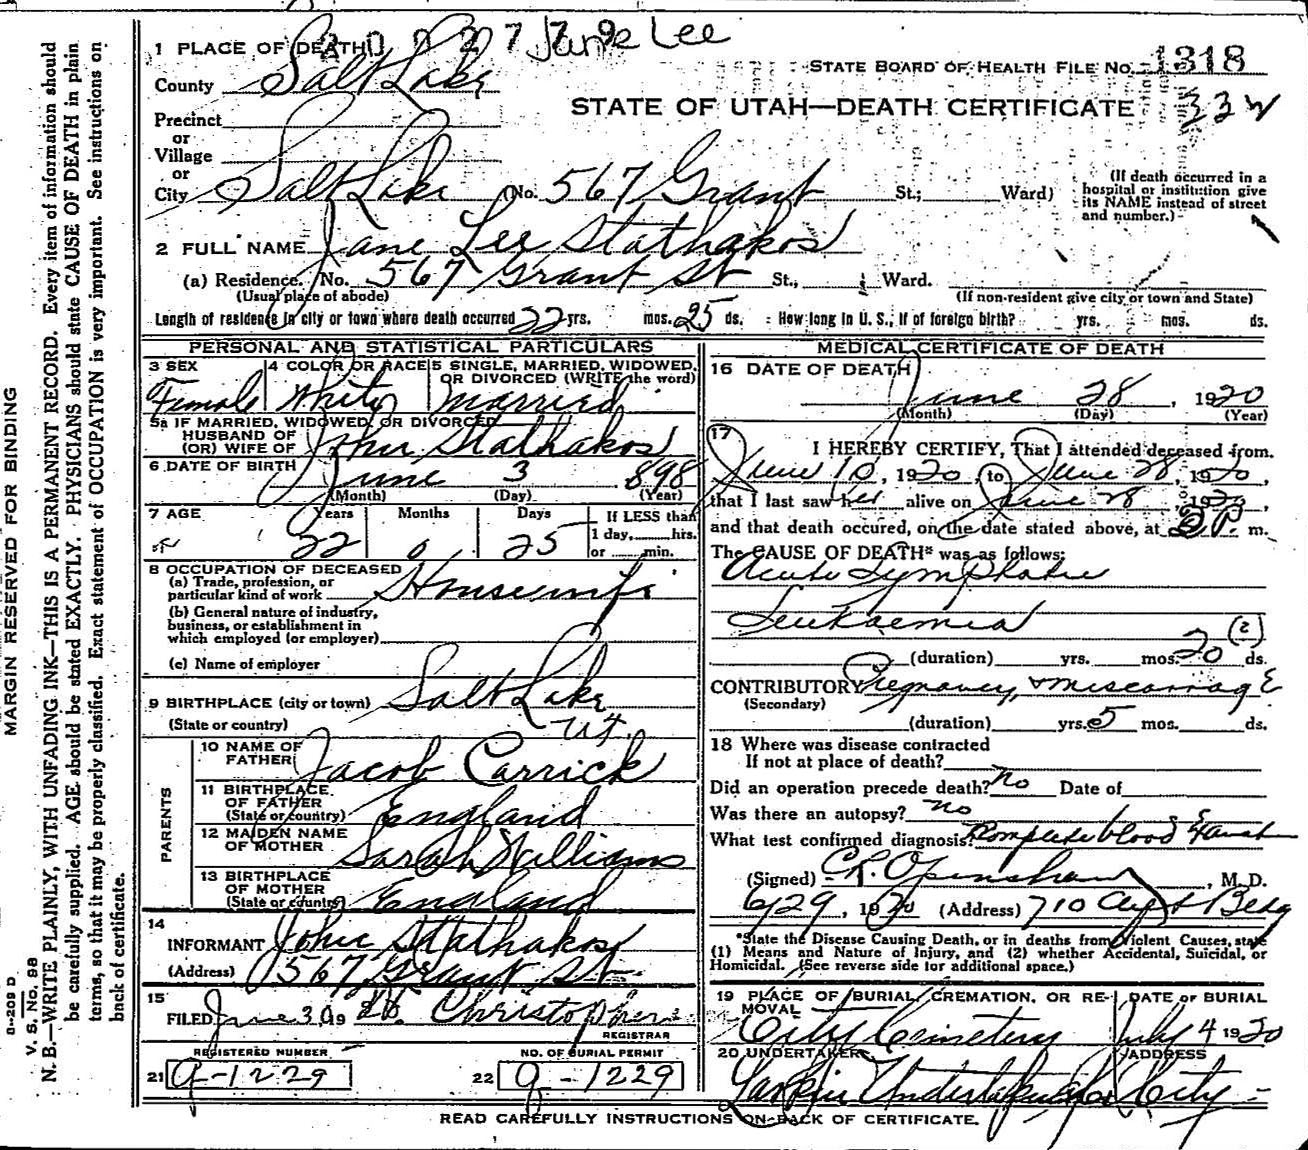 Jane Lee
1 PLACE OF DEATH
STATE BOARD OF HEALTH FILE No. 1318
County Salt Lake
STATE OF UTAH—DEATH CERTIFICATE
33
Precinct
or
Village
or
City Salt Lake (No. 567 Grant St; Ward)
(If death occurred in a
hospital or institution give
its NAME instead of street
and number.)
2 FULL NAME Jane Lee Stathakos
(a) Residence. No. 567 Grant St St., Ward.
(Usual place of abode) (If non-resident give city or town and State)
Length of residence in city or town where death occurred 22 yrs. mos. 25 ds. How long in U. S., if of foreign birth? yrs. mos. ds.
PERSONAL AND STATISTICAL PARTICULARS
3 SEX 4 COLOR OR RACE 5 SINGLE, MARRIED, WIDOWED,
OR DIVORCED (WRITE the word)
Female White Married
5a IF MARRIED, WIDOWED, OR DIVORCED
HUSBAND OF
(OR) WIFE OF John Stathakos
6 DATE OF BIRTH June 3 898
(Month) (Day) (Year)
7 AGE Years Months Days If LESS than
1 day, hrs.
or min.
22 0 25
8 OCCUPATION OF DECEASED
(a) Trade, profession, or
particular kind of work Housewife
(b) General nature of industry,
business, or establishment in
which employed (or employer)
(c) Name of employer
9 BIRTHPLACE (city or town) Salt Lake
(State or country) Ut.
PARENTS
10 NAME OF
FATHER Jacob Carrick
11 BIRTHPLACE
OF FATHER
(State or country) England
12 MAIDEN NAME
OF MOTHER Sarah Williams
13 BIRTHPLACE
OF MOTHER
(State or country) England
14
INFORMANT John Stathakos
(Address) 567 Grant St.
15
FILED June 30 19 Christophers
REGISTRAR
REGISTERED NUMBER NO. OF BURIAL PERMIT
21 a-1229 22 a-1229
MEDICAL CERTIFICATE OF DEATH
16 DATE OF DEATH
June 28, 1920
(Month) (Day) (Year)
17
I HEREBY CERTIFY, That I attended deceased from
June 10, 1920, to June 28, 1920,
that I last saw her alive on June 28, 1920,
and that death occured, on the date stated above, at 2 P. m.
The CAUSE OF DEATH* was as follows:
Acute Lymphatic
Leukaemia
(2)
(duration) yrs. mos. 20 ds.
CONTRIBUTORY Pregnancy & miscarriage
(Secondary)
(duration) yrs. 5 mos. ds.
18 Where was disease contracted
If not at place of death?
Did an operation precede death? no Date of
Was there an autopsy? no
What test confirmed diagnosis? Complete blood
(Signed) C.R. Openshaw, M. D.
6/29, 1920 (Address) 710 Bldg
*State the Disease Causing Death, or in deaths from Violent Causes, state
(1) Means and Nature of Injury, and (2) whether Accidental, Suicidal, or
Homicidal. (See reverse side for additional space.)
19 PLACE OF BURIAL, CREMATION, OR RE-
MOVAL DATE OF BURIAL
City Cemetery July 4 1920
20 UNDERTAKER ADDRESS
Larkin Undertaking Co City
READ CAREFULLY INSTRUCTIONS ON BACK OF CERTIFICATE.
MARGIN RESERVED FOR BINDING
B-208 D
V. S. No. 98
N. B.—WRITE PLAINLY, WITH UNFADING INK—THIS IS A PERMANENT RECORD. Every item of information should
be carefully supplied. AGE should be stated EXACTLY. PHYSICIANS should state CAUSE OF DEATH in plain
terms, so that it may be properly classified. Exact statement of OCCUPATION is very important. See instructions on
back of certificate.